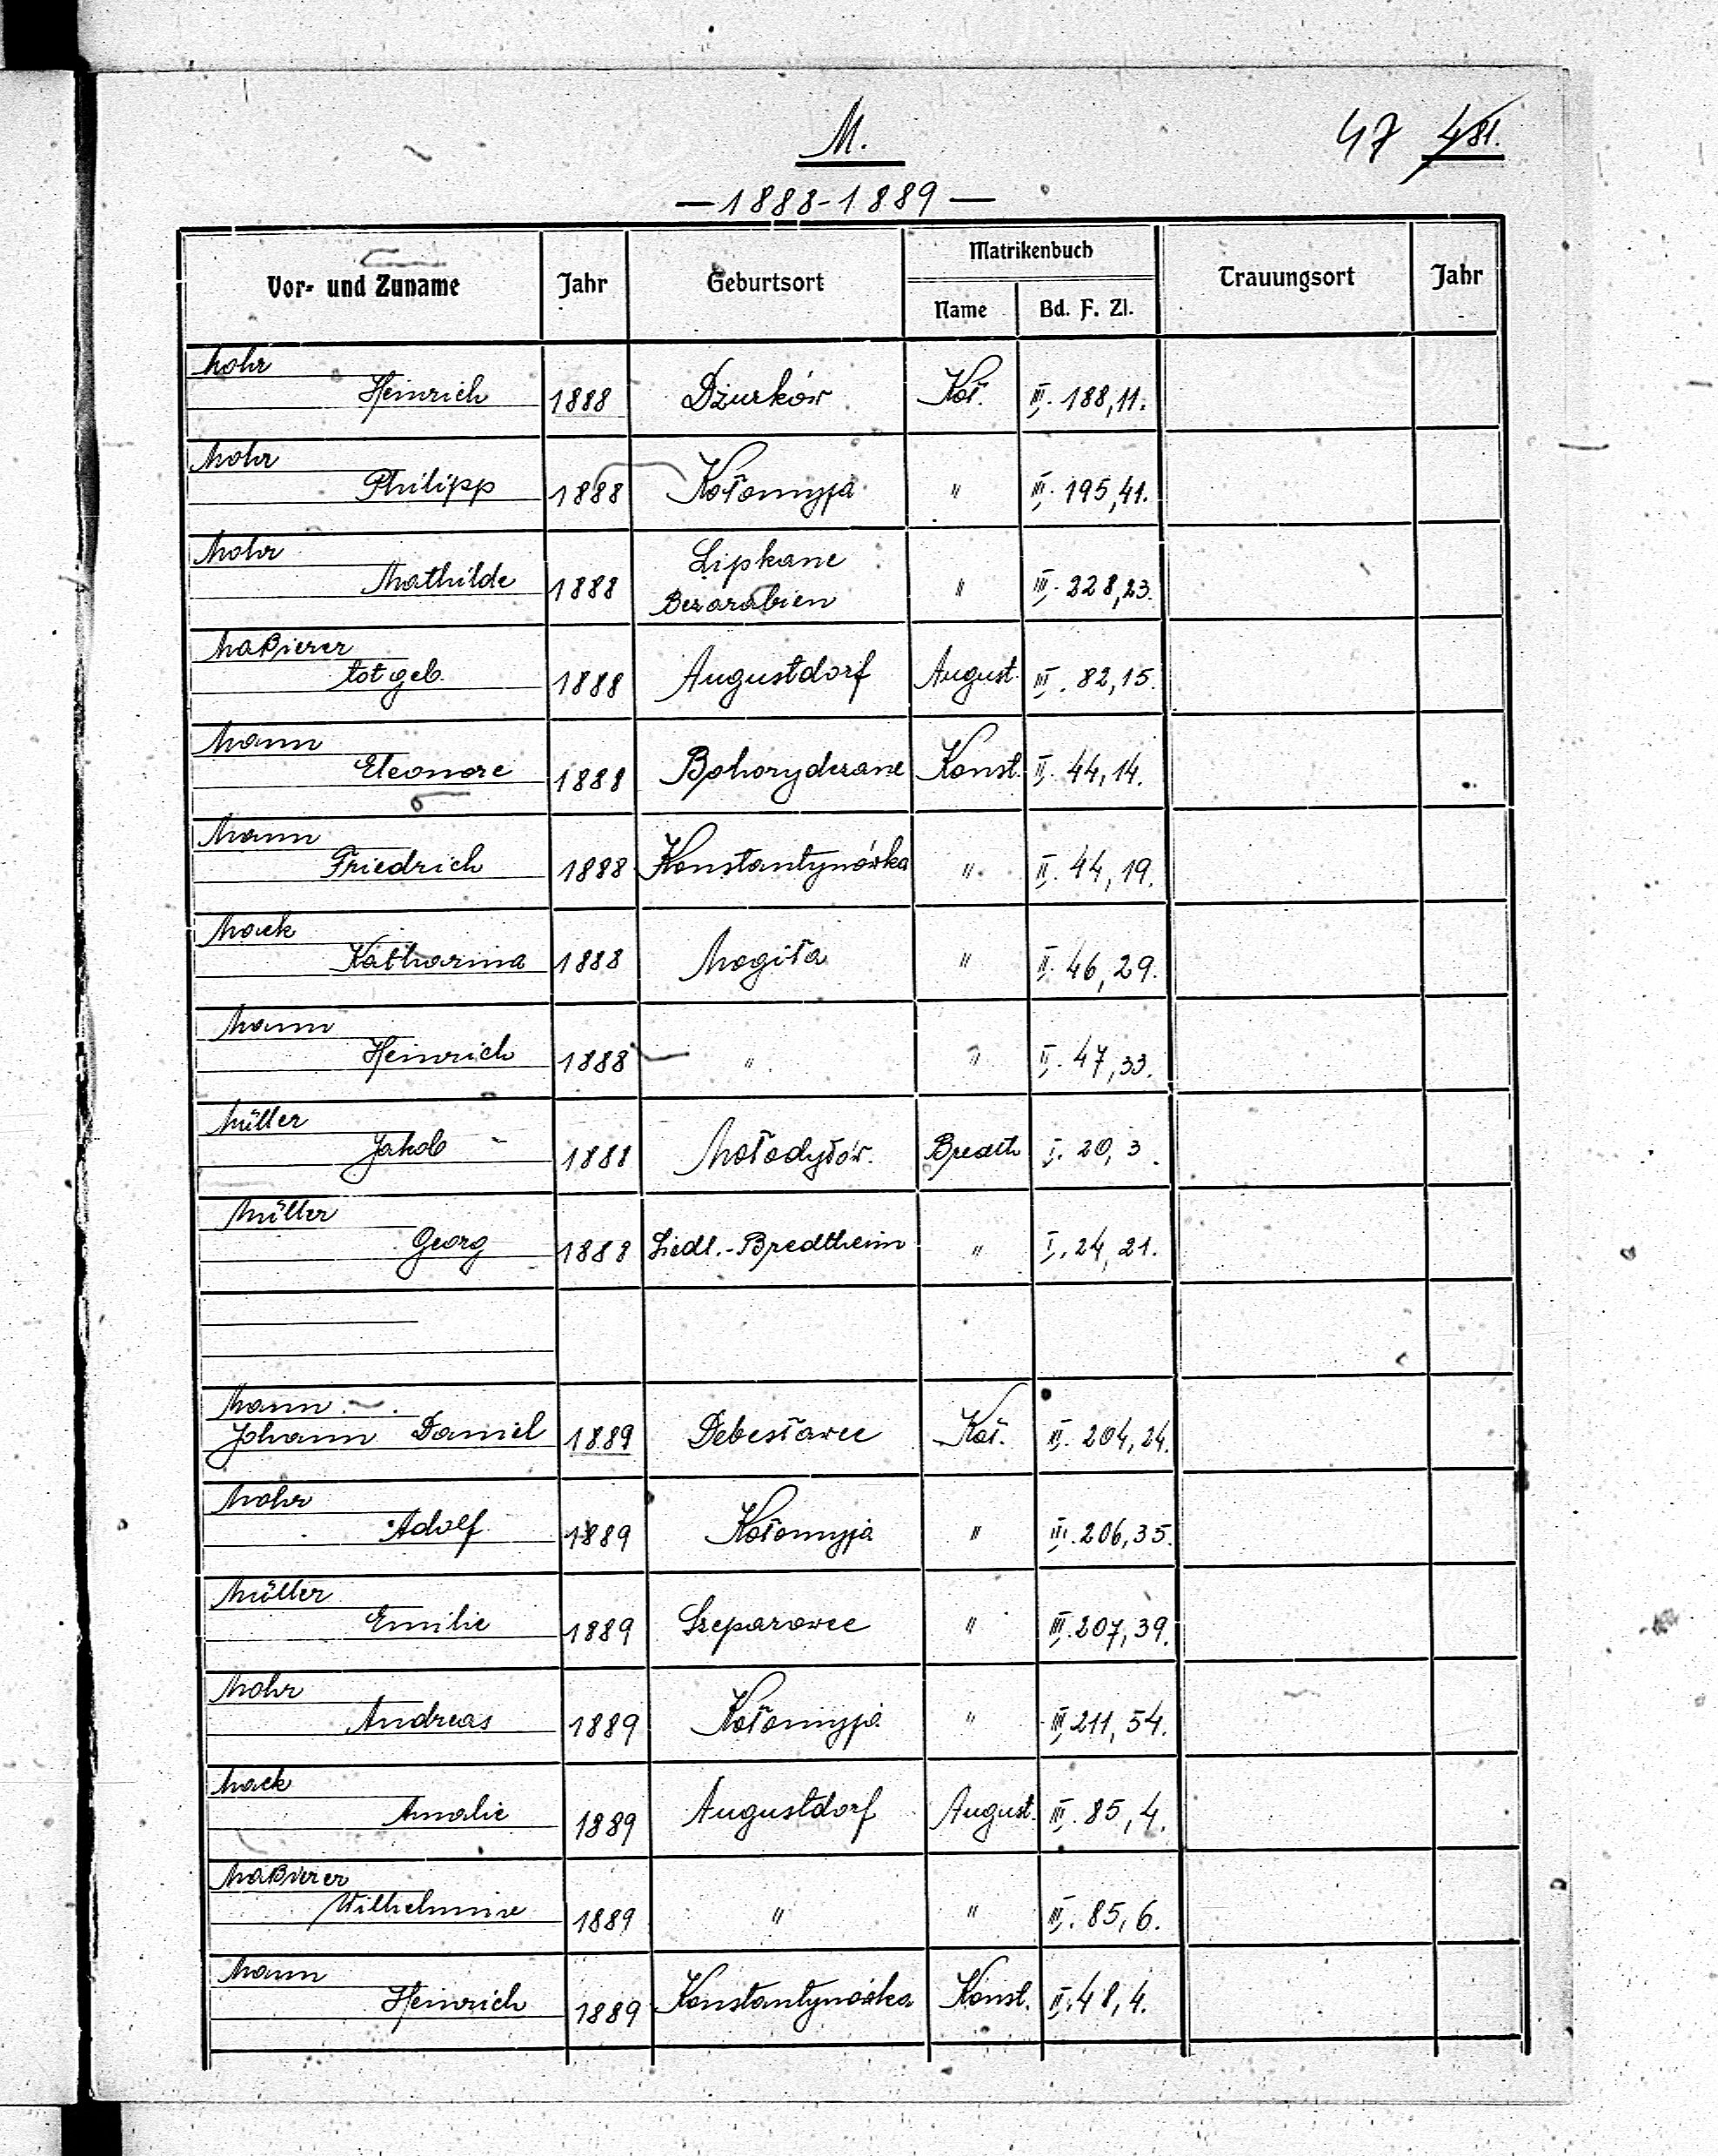 M.
47 481.
— 1888-1889 —
Vor- und Zuname Jahr Geburtsort Matrikenbuch Trauungsort Jahr
Name Bd. F. Zl.
Mohr
Heinrich 1888 Dżurków Koł. III. 188, 11.
Mohr
Philipp 1888 Kołomyja " III. 195, 41.
Mohr
Mathilde 1888 Lipkane " III. 228, 23.
Bezarabien
Maßierer
totgeb. 1888 Augustdorf August. III. 82, 15.
Mann
Eleonore 1888 Konst. II. 44, 14.
Mann
Friedrich 1888 Konstantynówka " II. 44, 19.
Mack
Katharina 1888 Mogiła " II. 46, 29.
Mann
Heinrich 1888 " " II. 47, 33.
Müller
Jakob 1888 Mołodyłów. Bredth I. 20, 3.
Müller
Georg 1888 Siedl.-Bredtheim " I. 24, 21.
Mann
Johann Daniel 1889 Debesławce Koł. III. 204, 24.
Mohr
Adolf 1889 Kołomyja " III. 206, 35.
Müller
Emilie 1889 Szeparowce " III. 207, 39.
Mohr
Andreas 1889 Kołomyja " III. 211, 54.
Mack
Amalie 1889 Augustdorf August. III. 85, 4.
Maßierer
Wilhelmine 1889 " " III. 85, 6.
Mann
Heinrich 1889 Konstantynówka Konst. II. 48, 4.